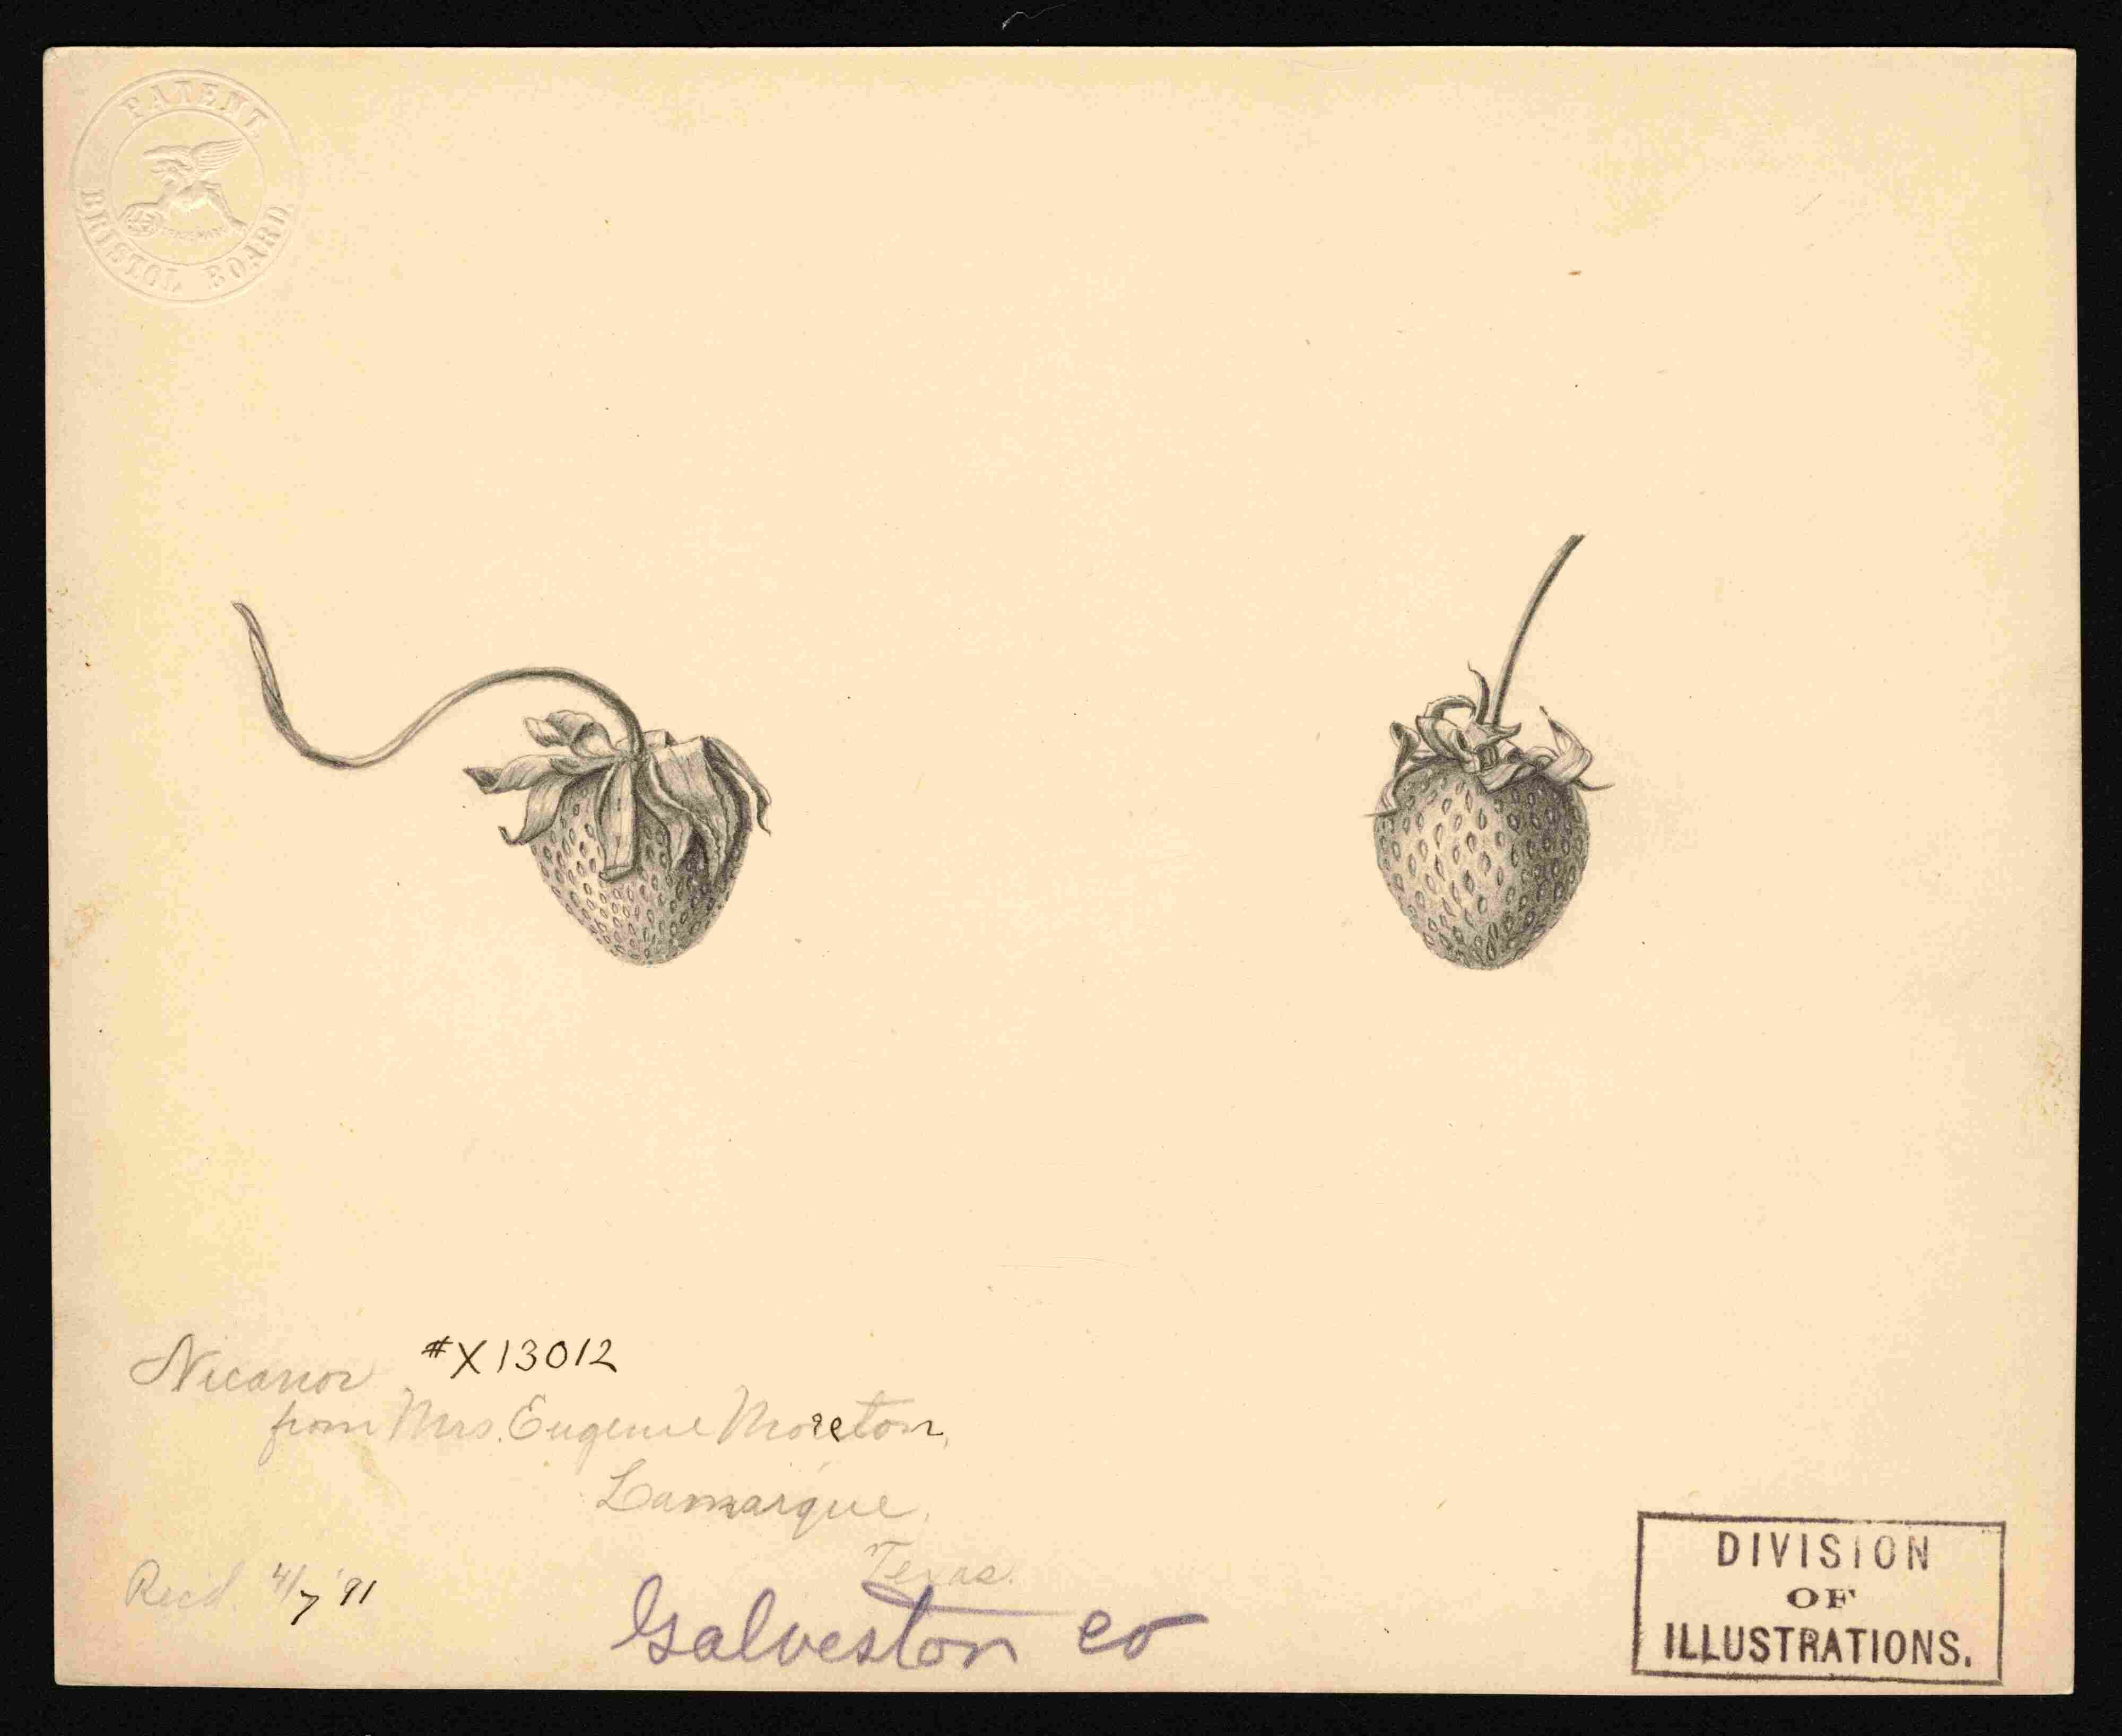 PATENT
BRISTOL BOARD
Nicanor #X13012
from Mrs. Eugenie Moreton,
Lamarque,
Texas.
Rec'd. 4/7 '91
Galveston Co
DIVISION
OF
ILLUSTRATIONS.